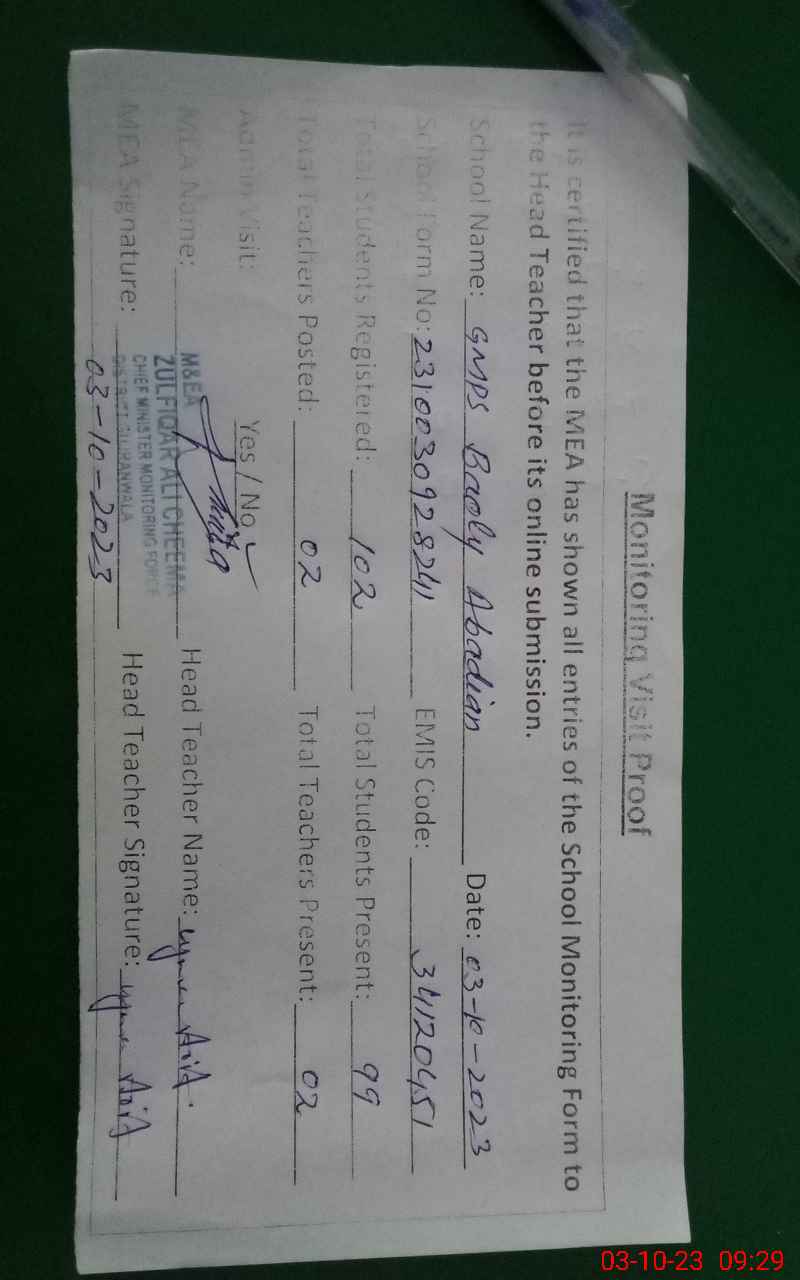 Monitoring Visit Proof
It is certified that the MEA has shown all entries of the School Monitoring Form to
the Head Teacher before its online submission.
School Name: GMPS Baoly Abadian Date: 03-10-2023
School Form No: 2310030928241 EMIS Code: 34120451
Total Students Registered: 102 Total Students Present: 99
Total Teachers Posted: 02 Total Teachers Present: 02
Admin Visit: Yes / No ✓
MEA Name: Head Teacher Name:
M&EA
ZULFIQAR ALI CHEEMA
CHIEF MINISTER MONITORING FORCE
DISTRICT GUJRANWALA
MEA Signature: Head Teacher Signature:
03-10-2023
03-10-23 09:29